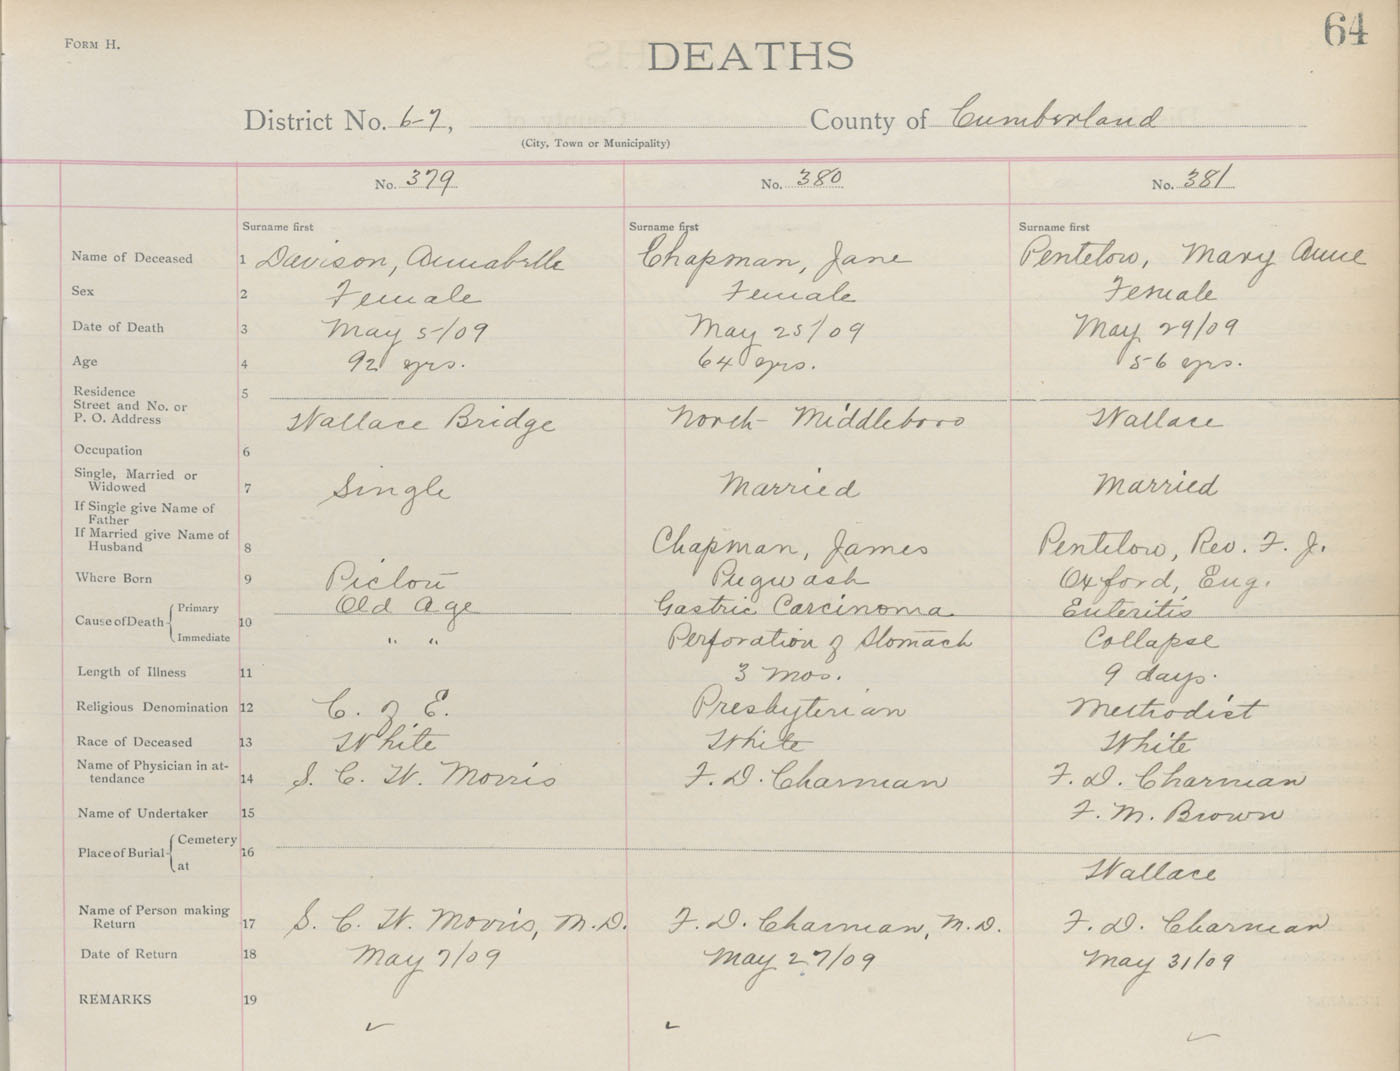 64
FORM H.
DEATHS
District No. 6-7, County of Cumberland
(City, Town or Municipality)
No. 379 No. 380 No. 381
Surname first Surname first Surname first
Name of Deceased 1 Davison, Annabelle Chapman, Jane Pentelow, Mary Anne
Sex 2 Female Female Female
Date of Death 3 May 5/09 May 25/09 May 29/09
Age 4 92 yrs. 64 yrs. 56 yrs.
Residence 5
Street and No. or
P. O. Address Wallace Bridge North Middleboro Wallace
Occupation 6
Single, Married or
Widowed 7 Single Married Married
If Single give Name of
Father
If Married give Name of
Husband 8 Chapman, James Pentelow, Rev. F. J.
Where Born 9 Pictou Pugwash Oxford, Eng.
Cause of Death 10 Primary Old Age Gastric Carcinoma Enteritis
Immediate " " Perforation of Stomach Collapse
Length of Illness 11 3 mos. 9 days.
Religious Denomination 12 C. of E. Presbyterian Methodist
Race of Deceased 13 White White White
Name of Physician in at-
tendance 14 S. C. W. Morris F. D. Charman F. D. Charman
Name of Undertaker 15 F. M. Brown
Place of Burial 16 Cemetery
at Wallace
Name of Person making
Return 17 S. C. W. Morris, M.D. F. D. Charman, M.D. F. D. Charman
Date of Return 18 May 7/09 May 27/09 May 31/09
REMARKS 19